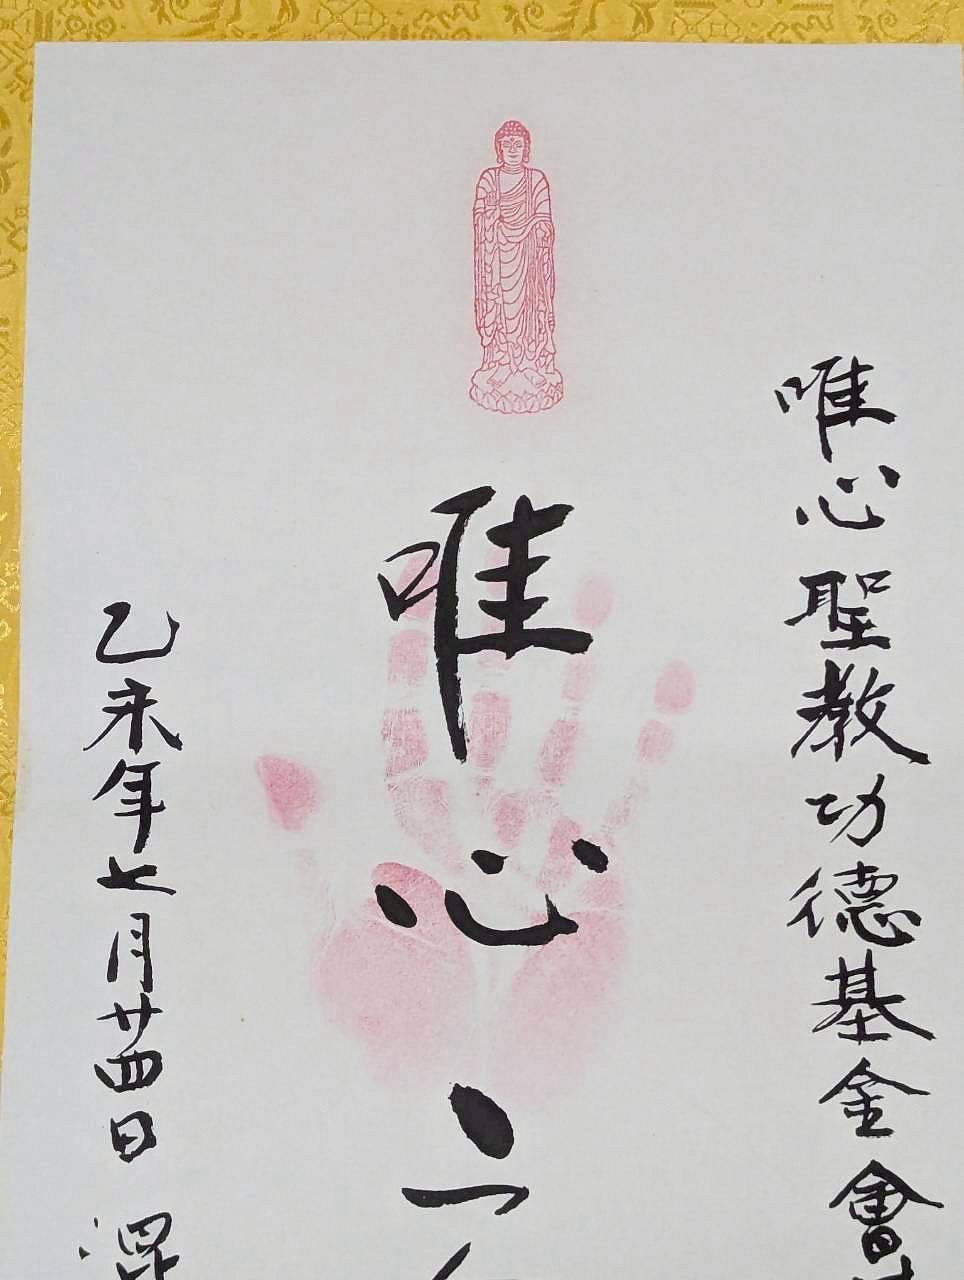 唯心聖教功德基金會
唯心
乙未年七月廿四日